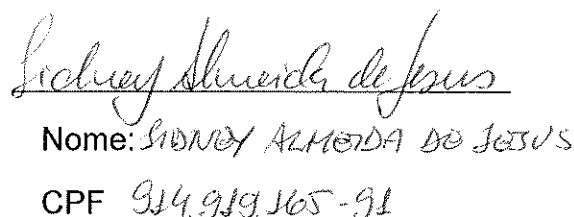 Sidney Almeida de Jesus
Nome: SIDNEY ALMEIDA DE JESUS
CPF 914.919.165-91